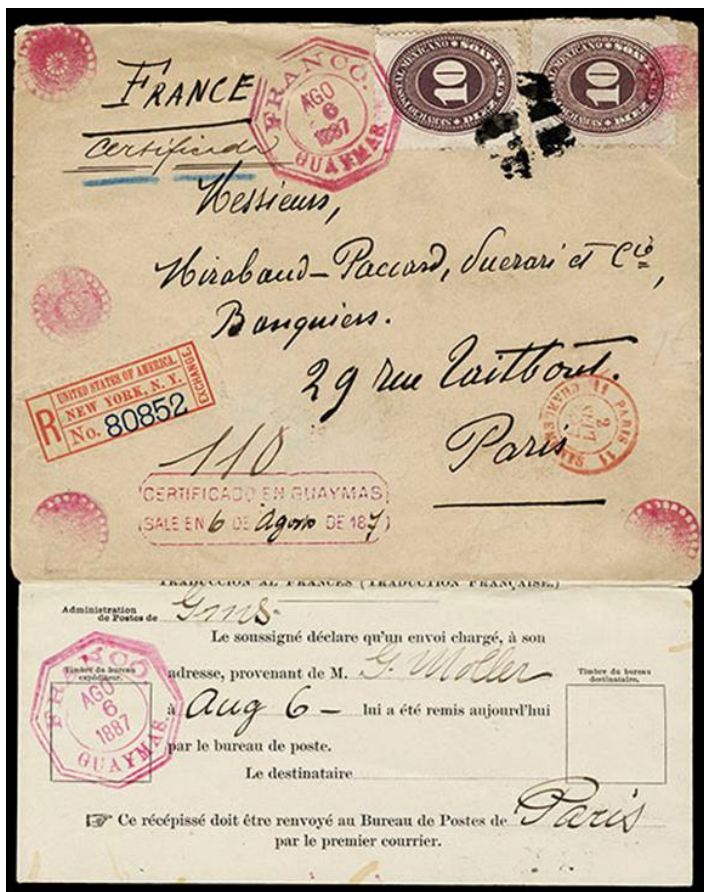 FRANCE
Certificado
FRANCO.
AGO
6
1887
GUAYMAS.
SERVICIO POSTAL MEXICANO
10
DIEZ CENTAVOS
SERVICIO POSTAL MEXICANO
10
DIEZ CENTAVOS
Messieurs,
Mirabaud-Paccard, Puerari et Cie,
Banquiers.
29 rue Taitbout.
Paris
UNITED STATES OF AMERICA.
NEW YORK, N. Y.
EXCHANGE.
R No. 80852
PARIS 11
2
SEPT
110
CERTIFICADO EN GUAYMAS
SALE EN 6 DE Agosto DE 1887
TRADUCCION AL FRANCES (TRADUCTION FRANÇAISE.)
Administration
de Postes de Gms.
Le soussigné déclare qu'un envoi chargé, à son
adresse, provenant de M. G. Moller
à Aug 6 - lui a été remis aujourd'hui
par le bureau de poste.
Le destinataire
Timbre du bureau
expéditeur.
FRANCO.
AGO
6
1887
GUAYMAS.
Timbre du bureau
destinataire.
☞ Ce récépissé doit être renvoyé au Bureau de Postes de Paris
par le premier courrier.